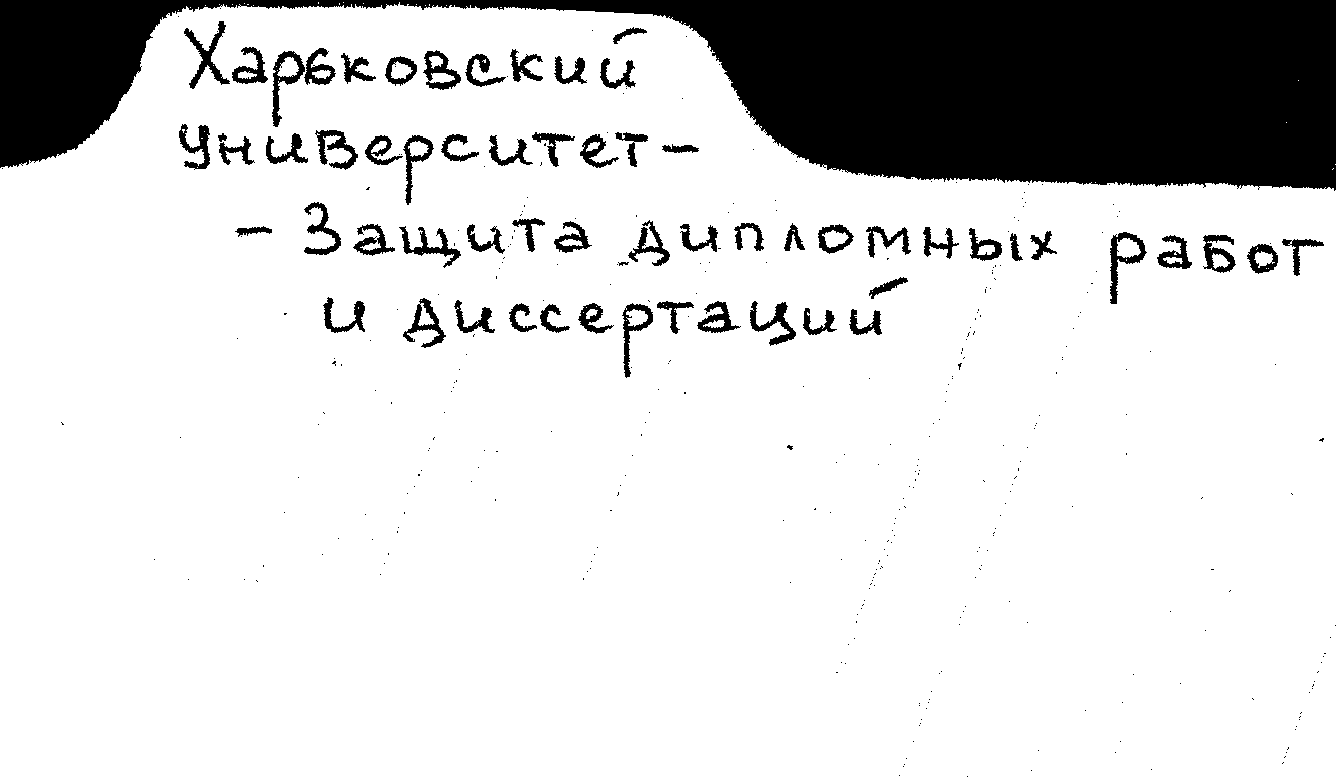 Харьковский
университет-
- Защита дипломных работ
и диссертаций